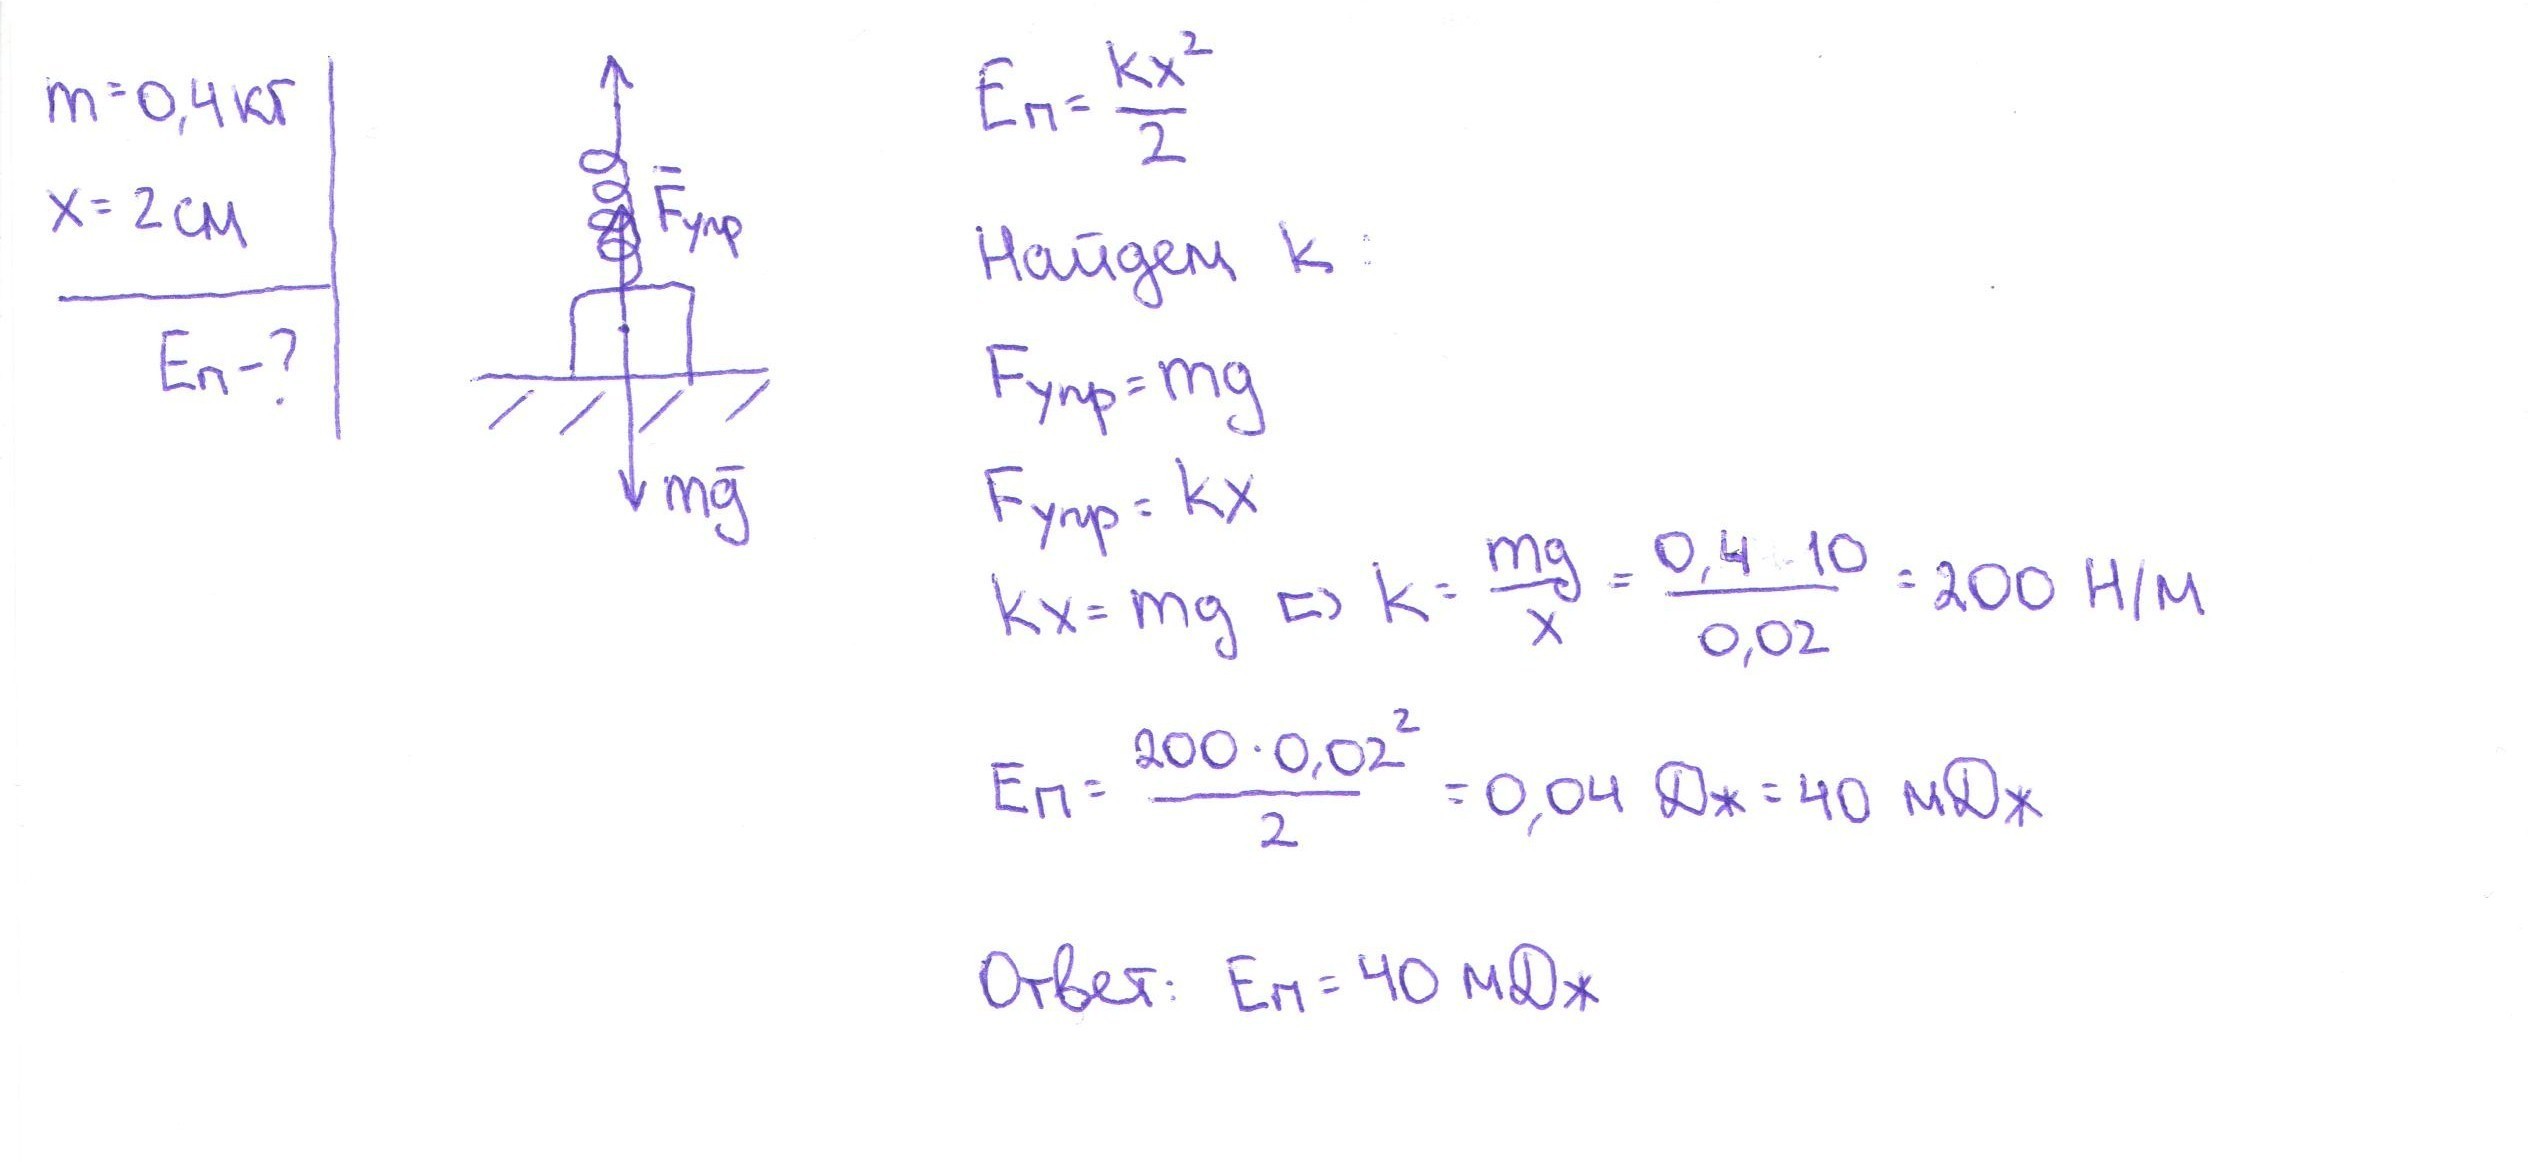 m=0,4кг
x=2см
Eп-?
F̄упр
mḡ
Eп=kx²/2
Найдем k:
Fупр=mg
Fупр=kx
kx=mg ⇨ k=mg/x=0,4·10/0,02=200 Н/м
Eп=200·0,02²/2=0,04 Дж=40 мДж
Ответ: Eп=40 мДж